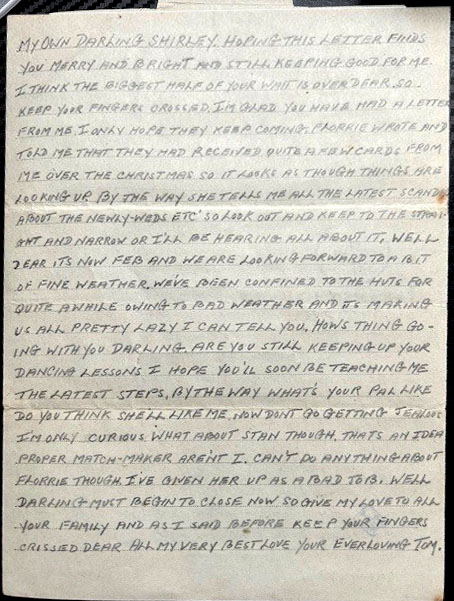 MY OWN DARLING SHIRLEY. HOPING THIS LETTER FINDS
YOU MERRY AND BRIGHT AND STILL KEEPING GOOD FOR ME.
I THINK THE BIGGEST HALF OF YOUR WAIT IS OVER DEAR, SO
KEEP YOUR FINGERS CROSSED. I'M GLAD YOU HAVE HAD A LETTER
FROM ME. I ONLY HOPE THEY KEEP COMING. FLORRIE WROTE AND
TOLD ME THAT THEY HAD RECEIVED QUITE A FEW CARDS FROM
ME OVER THE CHRISTMAS SO IT LOOKS AS THOUGH THINGS ARE
LOOKING UP. BY THE WAY SHE TELLS ME ALL THE LATEST SCAND
ABOUT THE NEWLY-WEDS ETC' SO LOOK OUT AND KEEP TO THE STRAI-
GHT AND NARROW OR I'LL BE HEARING ALL ABOUT IT. WELL
DEAR ITS NOW FEB AND WE ARE LOOKING FORWARD TO A BIT
OF FINE WEATHER. WE'VE BEEN CONFINED TO THE HUTS FOR
QUITE AWHILE OWING TO BAD WEATHER AND ITS MAKING
US ALL PRETTY LAZY I CAN TELL YOU. HOWS THING GO-
ING WITH YOU DARLING. ARE YOU STILL KEEPING UP YOUR
DANCING LESSONS I HOPE YOU'LL SOON BE TEACHING ME
THE LATEST STEPS, BY THE WAY WHAT'S YOUR PAL LIKE
DO YOU THINK SHE'LL LIKE ME. NOW DONT GO GETTING JEALOUS
I'M ONLY CURIOUS. WHAT ABOUT STAN THOUGH. THATS AN IDEA
PROPER MATCH-MAKER AREN'T I. CAN'T DO ANYTHING ABOUT
FLORRIE THOUGH. I'VE GIVEN HER UP AS A BAD JOB. WELL
DARLING MUST BEGIN TO CLOSE NOW SO GIVE MY LOVE TO ALL
YOUR FAMILY AND AS I SAID BEFORE KEEP YOUR FINGERS
CRISSED DEAR ALL MY VERY BEST LOVE YOUR EVERLOVING TOM.